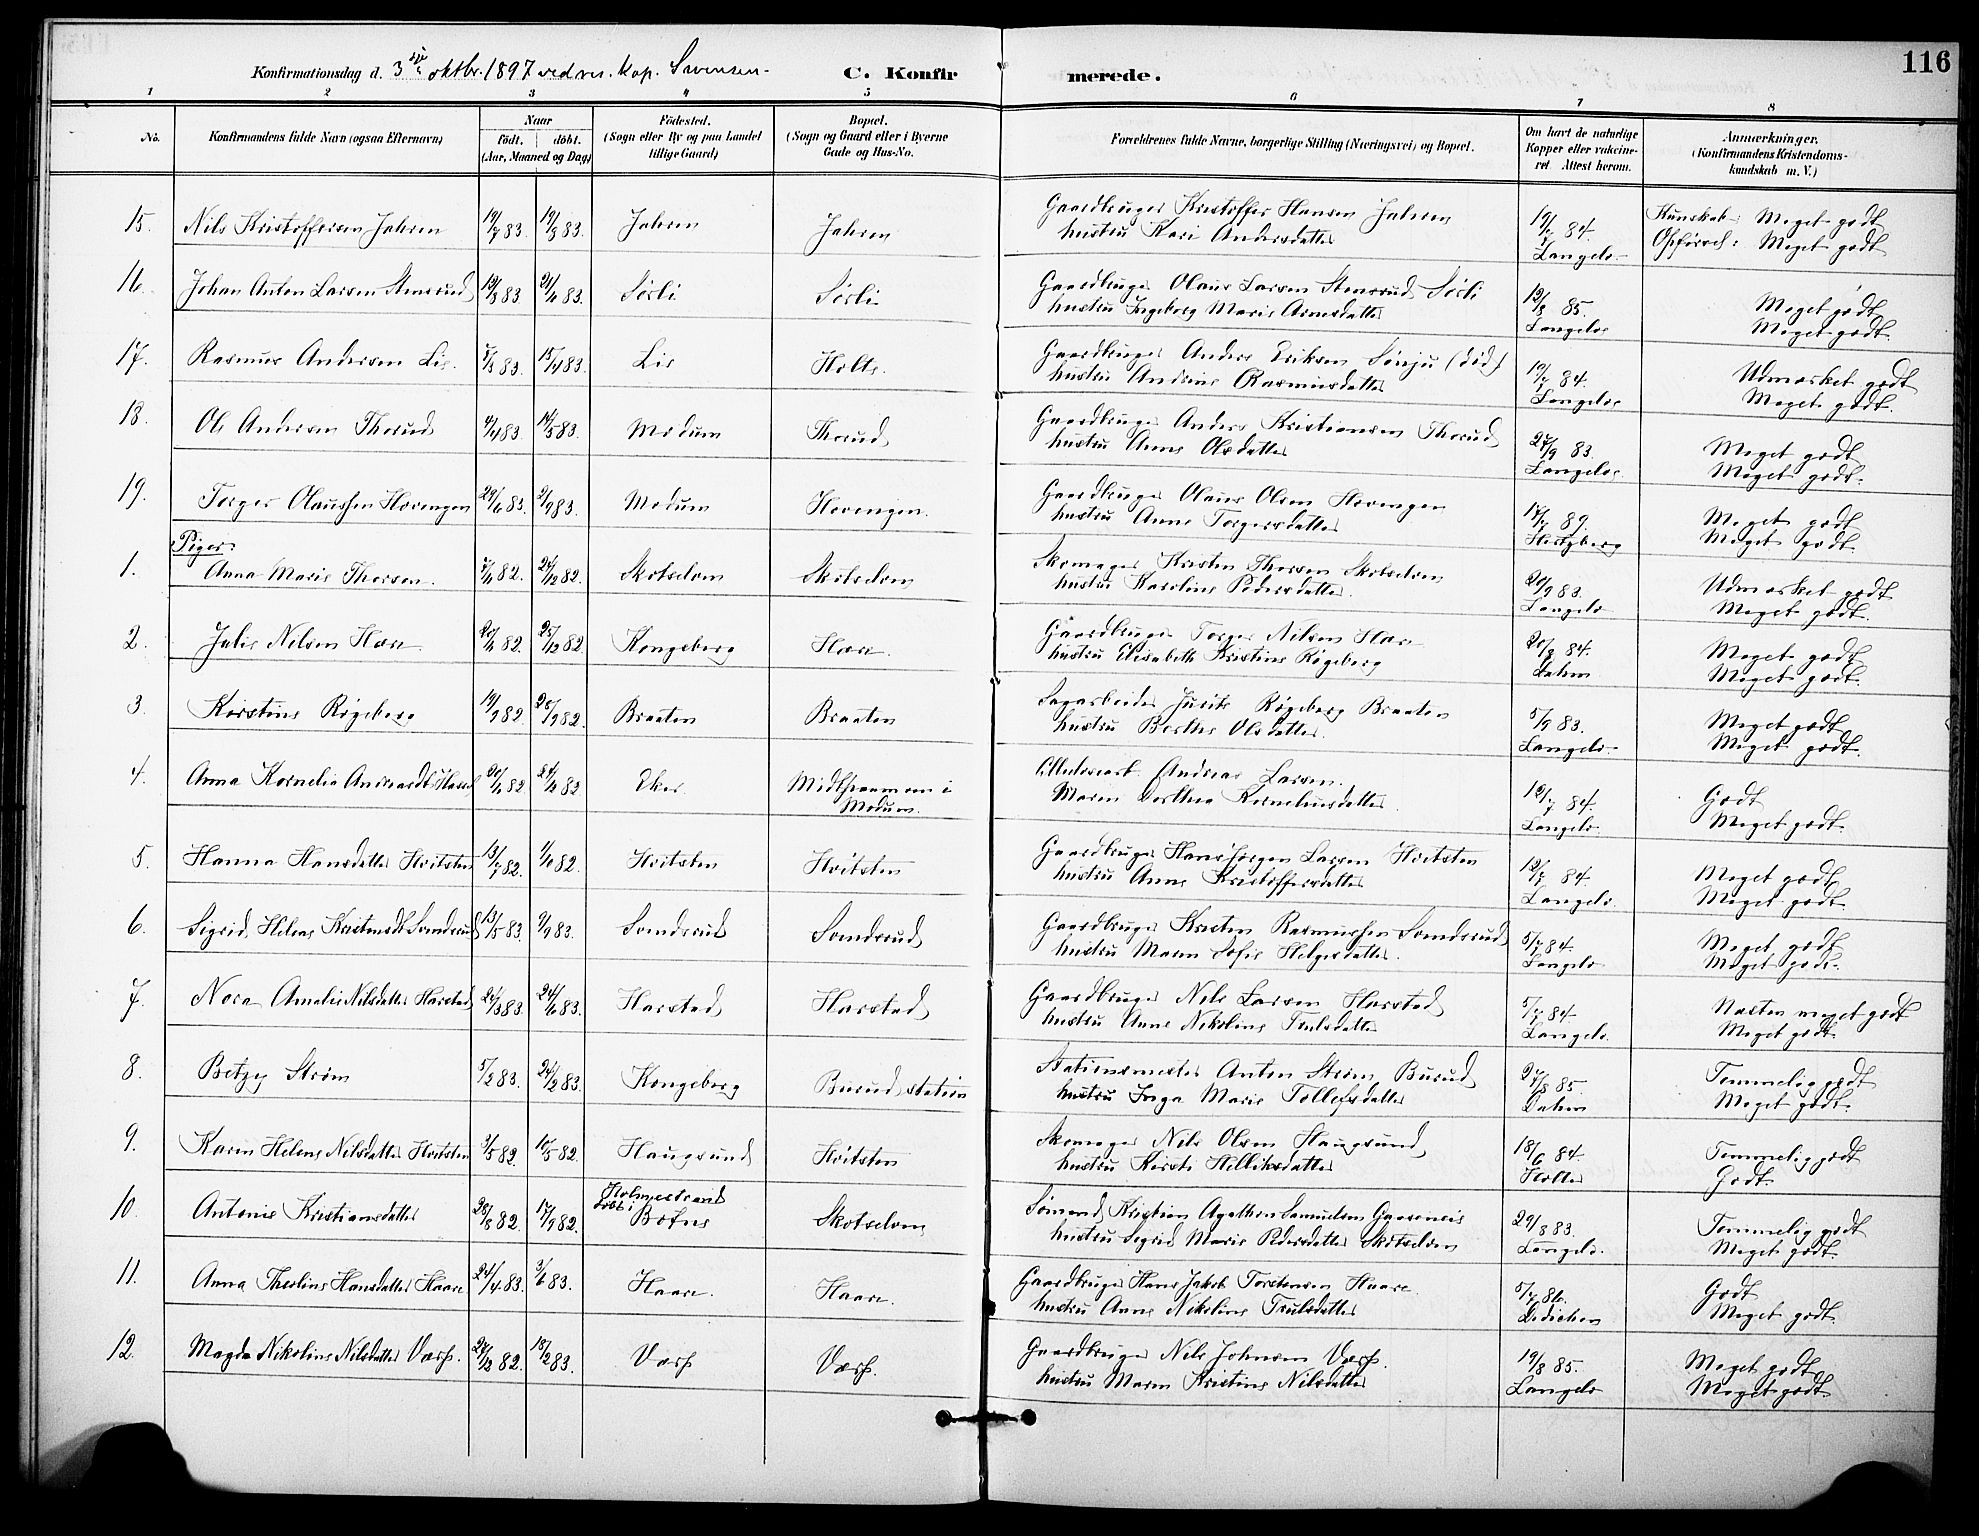 116
Konfirmationsdag d. 3die oktbr. 1897 ved res. kap. Svensen.
C. Konfirmerede.
1 2 3 4 5 6 7 8
No.
Konfirmandens fulde Navn (ogsaa Efternavn)
Naar
födt. döbt.
(Aar, Maaned og Dag)
Födested.
(Sogn eller By og paa Landet
tillige Gaard)
Bopæl.
(Sogn og Gaard eller i Byerne
Gade og Hus-No.
Forældrenes fulde Navne, borgerlige Stilling (Næringsvei) og Bopæl.
Om havt de naturlige
Kopper eller vakcine-
ret. Attest herom.
Anmærkninger.
(Konfirmandens Kristendoms-
kundskab m. V.)
15. Nils Kristoffersen Jahren 19/7 83. 19/8 83. Jahren Jahren Gaardbruger Kristoffer Hansen Jahren 19/7 84. Kunskab: Meget godt
hustru Kari Andersdatter Langelo Opførsel: Meget godt
16. Johan Anton Larsen Stensrud 83 83. Sørli Sørli Gaardbruger Olaus Larsen Stensrud Sørli 12/8 85. Meget godt
hustru Ingeborg Marie Arnesdatter Langelo Meget godt.
17. Rasmus Andersen Lie. 83. 15/4 83. Lie Holte. Gaardbruger Anders Eriksen Sønju (død) 84. Udmærket godt
hustru Andrine Rasmusdatter Langelo Meget godt.
18. Ole Andersen Thorud 4/4 83. 14/5 83. Modum Thorud Gaardbruger Anders Kristiansen Thorud 27/9 83. Meget godt
hustru Anne Olsdatter Langelo Meget godt.
19. Torger Olaussen Hovengen 24/6 83. 2/9 83. Modum Hovengen. Gaardbruger Olaus Olsen Hovengen 17/7 89. Meget godt
hustru Anne Torgersdatter Hertzberg Meget godt.
Piger.
1. Anna Marie Thorsen. 82. 24/12 82. Skotselven Skotselven Skomager Kristen Thorsen Skotselven 20/9 83. Udmærket godt
hustru Karoline Pedersdatter. Langelo Meget godt.
2. Julie Nilsen Hære. 82. 25/12 82 Kongsberg Hære. Gaardbruger Torger Nilsen Hære 20/8 84. Meget godt
hustru Elisabeth Kristine Røgeberg Dahm Meget godt.
3. Kristine Røgeberg 82. 82. Braaten Braaten Sagarbeider Røgeberg Braaten 5/9 83. Meget godt
hustru Berthe Olsdatter. Langelo Meget godt.
4. Anna Kornelia Andreasdtr 82 82 Eker Midtskaunmoen i Andreas Larsen. 12/7 84. Godt
Modum. Maren Dorthea Korneliusdatter. Langelo. Meget godt.
5. Hanna Hansdatter Hvitsten 13/7 82. 1/10 82. Hvitsten Hvitsten Gaardbruger Hans Jørgen Larsen Hvitsten 12/7 84. Meget godt
hustru Anne Kristoffersdatter Langelo. Meget godt.
6. Sigrid Helene Kristensdtr Somdrud 13/5 83. 2/9 83. Somdrud Somdrud Gaardbruger Kristen Rasmussen Somdrud 5/7 84. Meget godt
hustru Maren Sofie Helgesdatter. Langelo Meget godt.
7. Nora Amalie Nilsdatter Harstad 83. 24/6 83. Harstad Harstad Gaardbruger Nils Larsen Harstad 5/7 84 Næsten meget godt
hustru Anne Nikoline Trulsdatter Langelo. Meget godt.
8. Betzy Strøm 5/2 83. 24/2 83. Kongsberg Burud station Stationsmester Anton Strøm Burud 27/8 85 Temmelig godt
hustru Inga Marie Tollefsdatter Dahm Meget godt.
9. Karen Helene Nilsdatter Hvitsten 3/5 82. 10/5 82. Haugsund Hvitsten Skomager Nils Olsen Haugsund 18/6 84. Temmelig godt
hustru Kirsti Helliksdatter Holter Godt.
10. Antonie Kristiansdatter 28/8 82. 17/9 82. Holmestrand Skotselven Sømand Kristian Agathon Samuelsen 29/8 83. Temmelig godt
døbt i Botne hustru Sigrid Marie Pedersdatter Skotselven Langelo. Meget godt.
11. Anna Theoline Hansdatter Haare 24/4 83. 3/6 83. Haare. Haare. Gaardbruger Hans Jakob Torstensen Haare. 5/7 86. Godt
hustru Anne Nikoline Trulsdatter Didichen Meget godt.
12. Magda Nikoline Nilsdatter Værp. 24/12 82. 18/2 83. Værp Værp. Gaardbruger Nils Johnsen Værp. 19/8 85. Meget godt
hustru Maren Kristine Nilsdatter Langelo Meget godt.